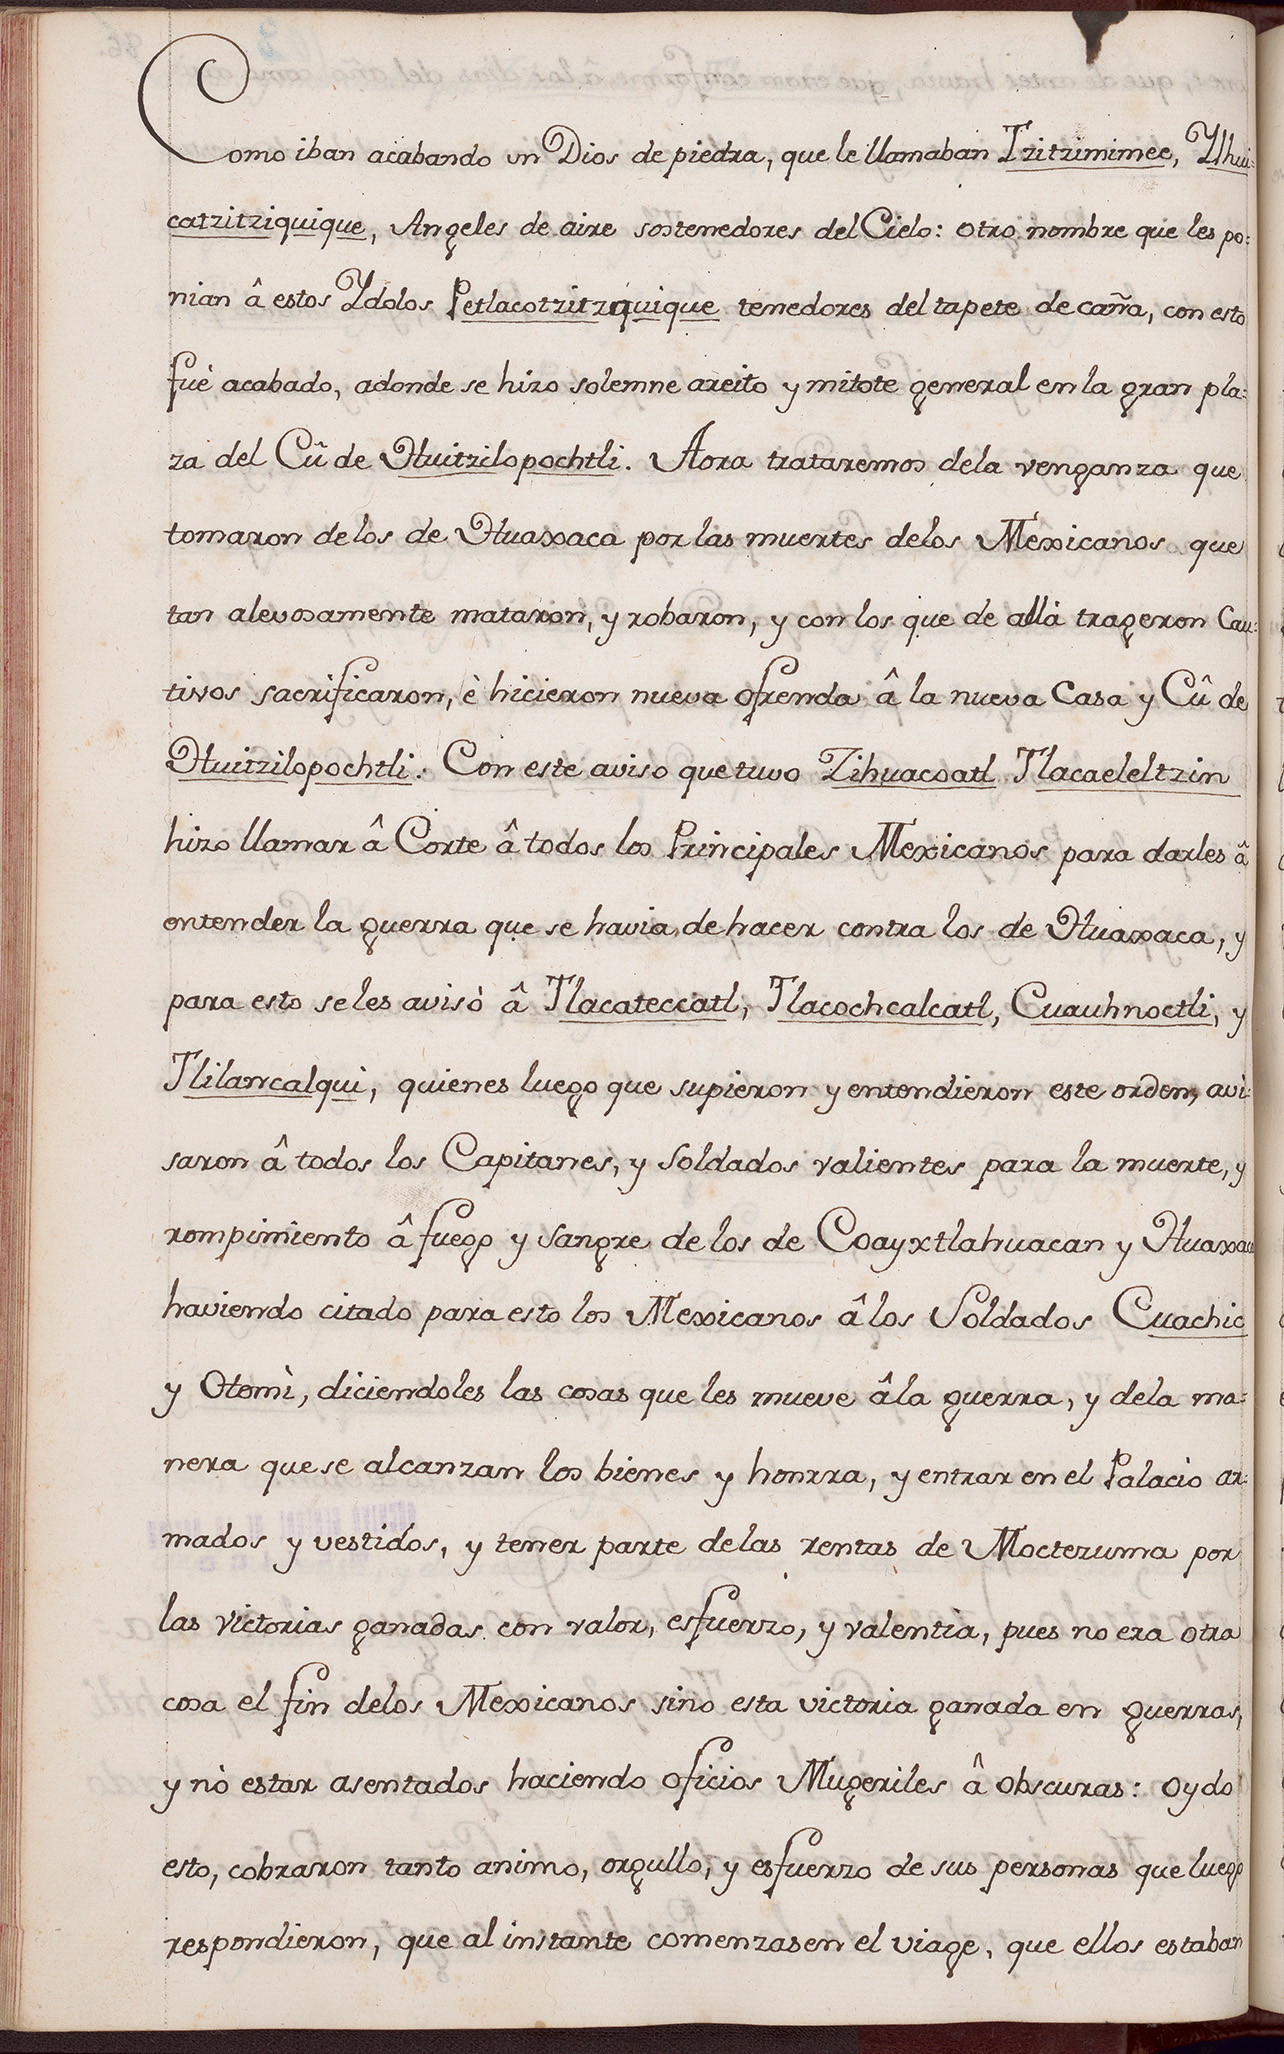 Como iban acabando un Dios de piedra, que le llamaban Tzitzimimec, Ylhui=
catzitziquique, Angeles de aire sostenedores del Cielo: otro nombre que les po=
nian â estos Ydolos Petlacotzitzquique tenedores del tapete de caña, con esto
fuè acabado, adonde se hizo solemne areito y mitote general en la gran pla=
za del Cû de Huitzilopochtli. Aora trataremos dela venganza que
tomaron delos de Huaxaca por las muertes delos Mexicanos que
tan alevosamente mataron, y robaron, y con los que de allà trageron Cau=
tivos sacrificaron, è hicieron nueva ofrenda â la nueva Casa y Cû de
Huitzilopochtli. Con este aviso que tuvo Zihuacoatl Tlacaeleltzin
hizo llamar â Corte â todos los Principales Mexicanos para darles â
entender la guerra que se havia de hacer contra los de Huaxaca, y
para esto seles avisò â Tlacateccatl, Tlacochcalcatl, Cuauhnoctli, y
Tlilancalqui, quienes luego que supieron y entendieron este orden, avi=
saron â todos los Capitanes, y Soldados valientes para la muerte, y
rompimiento â fuego y sangre de los de Coayxtlahuacan y Huaxaca
haviendo citado para esto los Mexicanos â los Soldados Cuachic
y Otomì, diciendoles las cosas que les mueve âla guerra, y dela ma=
nera que se alcanzan los bienes y honrra, y entrar en el Palacio ar=
mados y vestidos, y tener parte delas rentas de Moctezuma por
las victorias ganadas con valor, esfuerzo, y valentìa, pues no era otra
cosa el fin delos Mexicanos sino esta victoria ganada en guerras,
y nò estar asentados haciendo oficios Mugeriles â obscuras: oydo
esto, cobraron tanto animo, orgullo, y esfuerzo de sus personas que luego
respondieron, que al instante comenzasen el viage, que ellos estaban